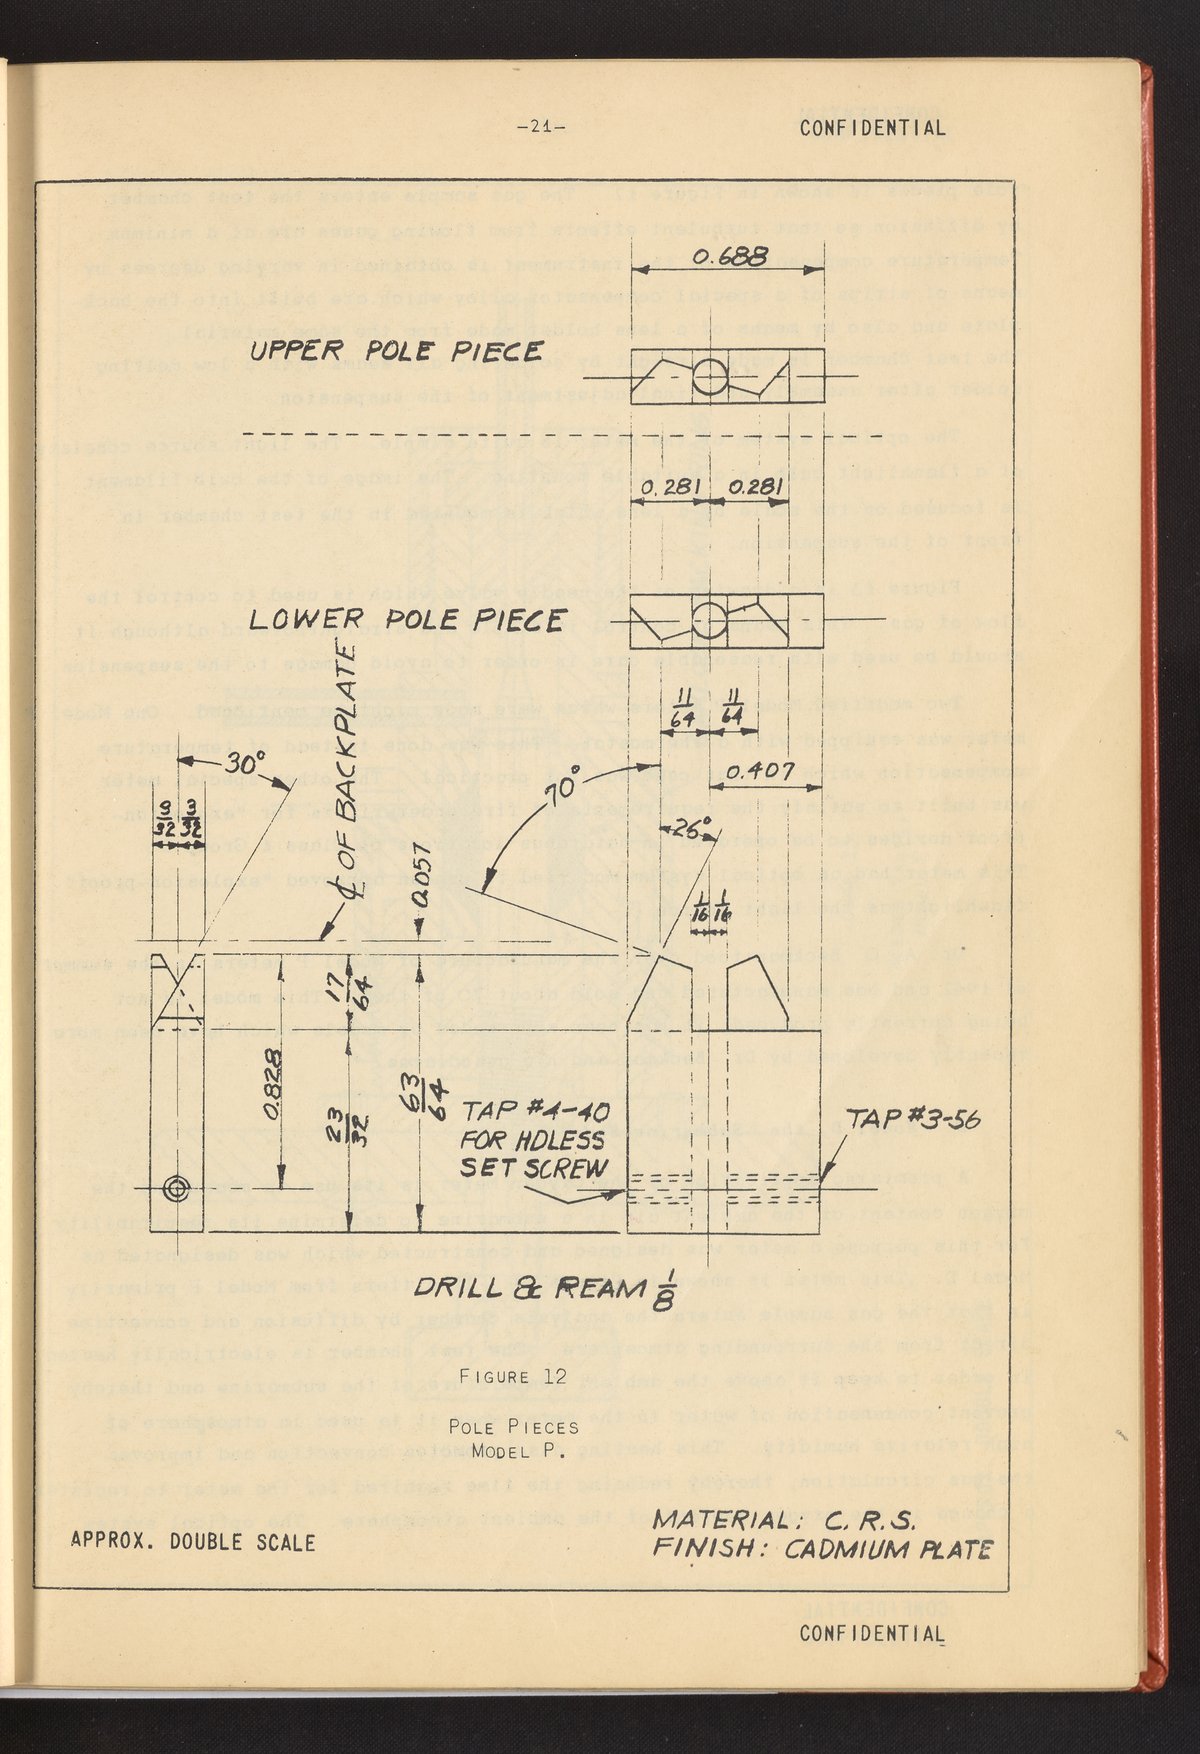 -21-
CONFIDENTIAL
0.688
UPPER POLE PIECE
0.281 0.281
LOWER POLE PIECE
℄ OF BACKPLATE
11/64 11/64
30°
70°
0.407
3/32 3/32
26°
0.057
1/16 1/16
17/64
0.828
23/32
63/64
TAP #4-40
FOR HDLESS
SET SCREW
TAP #3-56
DRILL & REAM 1/8
FIGURE 12
POLE PIECES
MODEL P.
APPROX. DOUBLE SCALE
MATERIAL: C. R. S.
FINISH: CADMIUM PLATE
CONFIDENTIAL